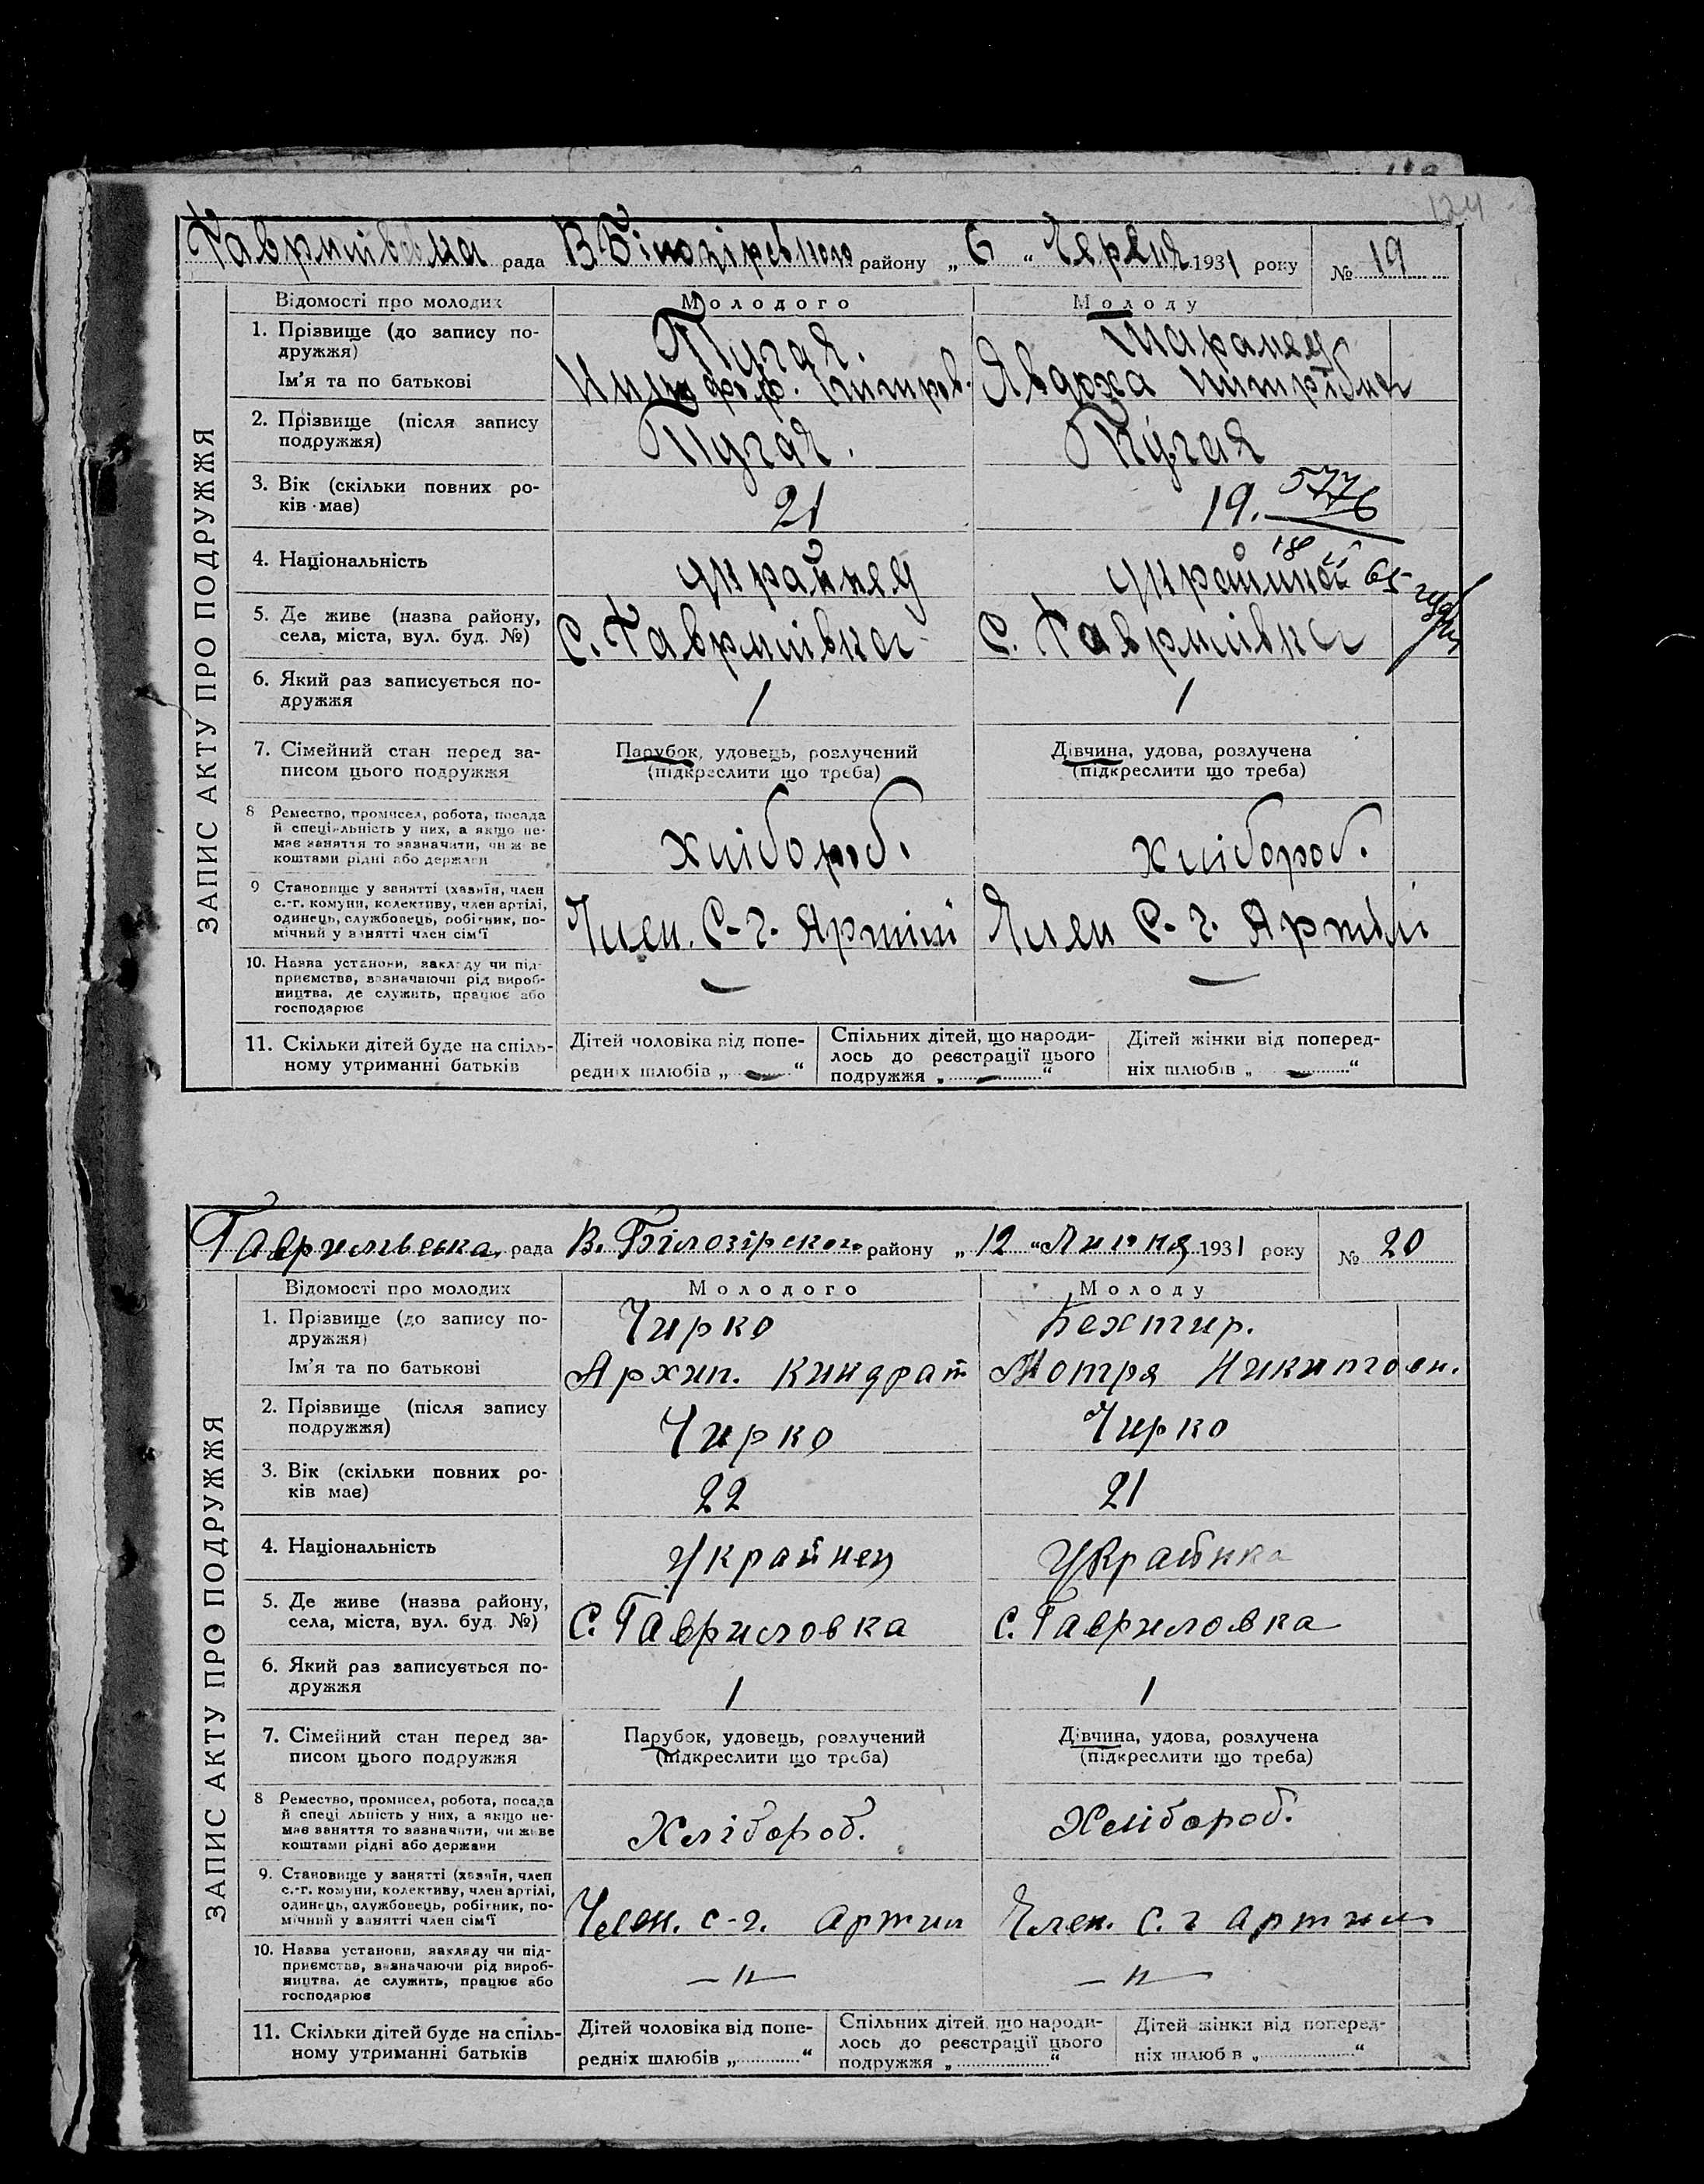 124
Гаврилівська рада В-Білозірського району „ 6 “ Червня 1931 року № 19
ЗАПИС АКТУ ПРО ПОДРУЖЖЯ
Відомості про молодих Молодого Молоду
1. Прізвище (до запису по-
дружжя) Пугая. Таранец
Ім'я та по батькові Петров. Явдоха Пітрівна
2. Прізвище (після запису
подружжя) Пугая. Пугая
3. Вік (скільки повних ро-
ків має) 21 19. 5776
4. Національність українец українка 18 65
5. Де живе (назва району,
села, міста, вул. буд. №) С. Гаврилівка С. Гаврилівка
6. Який раз записується по-
дружжя 1 1
7. Сімейний стан перед за-
писом цього подружжя
Парубок, удовець, розлучений
(підкреслити що треба)
Дівчина, удова, розлучена
(підкреслити що треба)
8 Ремество, промисел, робота, посада
й спеціяльність у них, а якщо не-
має заняття то зазначити, чи живе
коштами рідні або держави хлібороб. хлібороб.
9 Становище у занятті (хазяїн, член
с.-г. комуни, колективу, член артілі,
одинець, службовець, робітник, по-
мічний у занятті член сім'ї Член. С-г. Артілі Член С-г. Артілі
10. Назва установи, закладу чи під-
приємства, зазначаючи рід вироб-
ництва, де служить, працює або
господарює — —
11. Скільки дітей буде на спіль-
ному утриманні батьків
Дітей чоловіка від попе-
редніх шлюбів „ — “
Спільних дітей, що народи-
лось до реєстрації цього
подружжя „ — “
Дітей жінки від поперед-
ніх шлюбів „ — “
Гаврилвська рада В. Білозірского району „ 12 “ Липня 1931 року № 20
ЗАПИС АКТУ ПРО ПОДРУЖЖЯ
Відомості про молодих Молодого Молоду
1. Прізвище (до запису по-
дружжя) Чирко Бехтир.
Ім'я та по батькові Архип. Киндрат Мотря Никитовн.
2. Прізвище (після запису
подружжя) Чирко Чирко
3. Вік (скільки повних ро-
ків має) 22 21
4. Національність Українец Українка
5. Де живе (назва району,
села, міста, вул. буд. №) С. Гавриловка С. Гавриловка
6. Який раз записується по-
дружжя 1 1
7. Сімейний стан перед за-
писом цього подружжя
Парубок, удовець, розлучений
(підкреслити що треба)
Дівчина, удова, розлучена
(підкреслити що треба)
8 Ремество, промисел, робота, посада
й спеціяльність у них, а якщо не-
має заняття то зазначити, чи живе
коштами рідні або держави Хлібороб. Хлібороб.
9. Становище у занятті (хазяїн, член
с.-г. комуни, колективу, член артілі,
одинець, службовець, робітник, по-
мічний у занятті член сім'ї Член. с-г. артил Член. С. г артил
10. Назва установи, закладу чи під-
приємства, зазначаючи рід вироб-
ництва, де служить, працює або
господарює — " — — " —
11. Скільки дітей буде на спіль-
ному утриманні батьків
Дітей чоловіка від попе-
редніх шлюбів „ “
Спільних дітей, що народи-
лось до реєстрації цього
подружжя „ “
Дітей жінки від поперед-
ніх шлюбів „ “